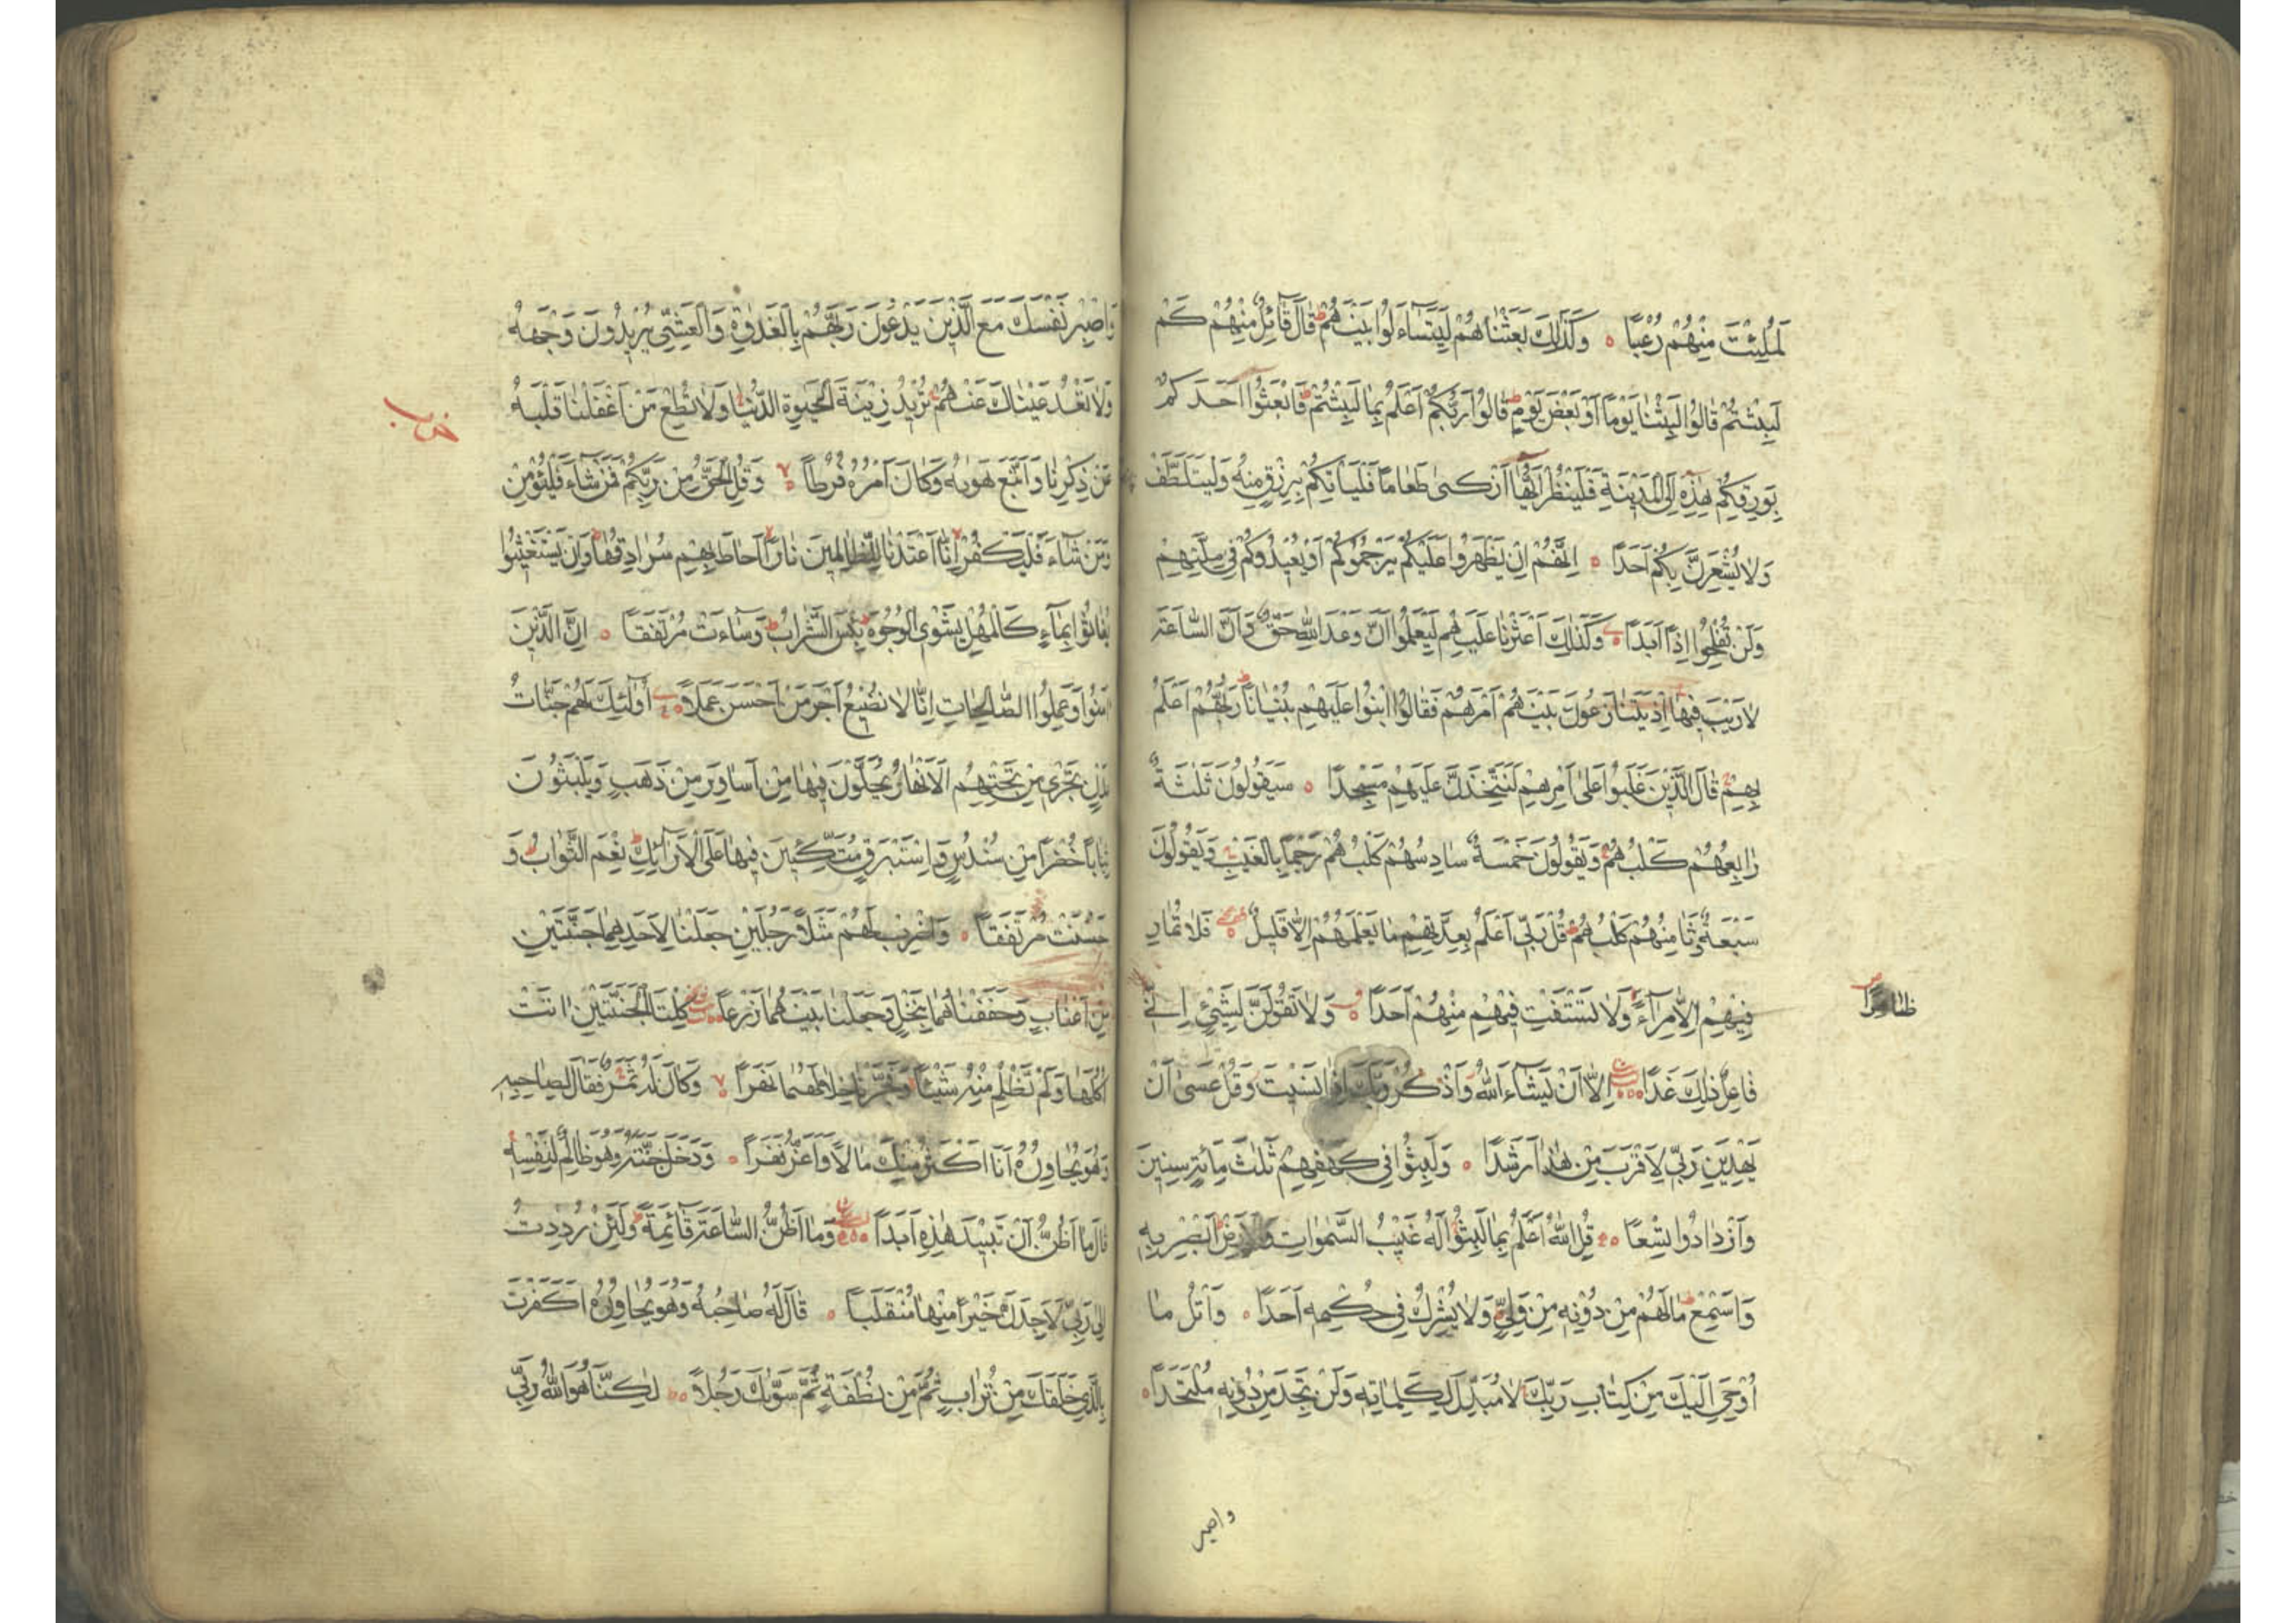 لَمُلِئْتَ مِنْهُمْ رُعْبًا ه وَكَذٰلِكَ بَعَثْنَاهُمْ لِيَتَسَآءَلُوا بَيْنَهُمْ ط قَالَ قَآئِلٌ مِنْهُمْ كَمْ
لَبِثْتُمْ قَالُوا لَبِثْنَا يَوْمًا اَوْ بَعْضَ يَوْمٍ ط قَالُوا رَبُّكُمْ اَعْلَمُ بِمَا لَبِثْتُمْ ط فَابْعَثُوا اَحَدَكُمْ
بِوَرِقِكُمْ هٰذِهِ اِلَى الْمَدِيْنَةِ فَلْيَنْظُرْ اَيُّهَا اَزْكىٰ طَعَامًا فَلْيَاْتِكُمْ بِرِزْقٍ مِنْهُ وَلْيَتَلَطَّفْ
وَلَا يُشْعِرَنَّ بِكُمْ اَحَدًا ه اِنَّهُمْ اِنْ يَظْهَرُوا عَلَيْكُمْ يَرْجُمُوكُمْ اَوْ يُعِيْدُوكُمْ فِي مِلَّتِهِمْ
وَلَنْ تُفْلِحُوا اِذًا اَبَدًا ه وَكَذٰلِكَ اَعْثَرْنَا عَلَيْهِمْ لِيَعْلَمُوا اَنَّ وَعْدَ اللهِ حَقٌّ وَاَنَّ السَّاعَةَ
لَا رَيْبَ فِيْهَا اِذْ يَتَنَازَعُونَ بَيْنَهُمْ اَمْرَهُمْ فَقَالُوا ابْنُوا عَلَيْهِمْ بُنْيَانًا ط رَبُّهُمْ اَعْلَمُ
بِهِمْ ط قَالَ الَّذِيْنَ غَلَبُوا عَلىٰ اَمْرِهِمْ لَنَتَّخِذَنَّ عَلَيْهِمْ مَسْجِدًا ه سَيَقُولُونَ ثَلٰثَةٌ
رَابِعُهُمْ كَلْبُهُمْ وَيَقُولُونَ خَمْسَةٌ سَادِسُهُمْ كَلْبُهُمْ رَجْمًا بِالْغَيْبِ وَيَقُولُونَ
سَبْعَةٌ وَثَامِنُهُمْ كَلْبُهُمْ ط قُلْ رَبِّي اَعْلَمُ بِعِدَّتِهِمْ مَا يَعْلَمُهُمْ اِلَّا قَلِيْلٌ ه فَلَا تُمَارِ
فِيْهِمْ اِلَّا مِرَآءً وَلَا تَسْتَفْتِ فِيْهِمْ مِنْهُمْ اَحَدًا ه وَلَا تَقُولَنَّ لِشَيْءٍ اِنِّي
ظَاهِرًا
فَاعِلٌ ذٰلِكَ غَدًا ه اِلَّا اَنْ يَشَآءَ اللهُ وَاذْكُرْ رَبَّكَ اِذَا نَسِيْتَ وَقُلْ عَسىٰ اَنْ
يَهْدِيَنِ رَبِّي لِاَقْرَبَ مِنْ هٰذَا رَشَدًا ه وَلَبِثُوا فِي كَهْفِهِمْ ثَلٰثَ مِائَةٍ سِنِيْنَ
وَازْدَادُوا تِسْعًا ه قُلِ اللهُ اَعْلَمُ بِمَا لَبِثُوا لَهُ غَيْبُ السَّمٰوَاتِ وَالْاَرْضِ ط اَبْصِرْ بِهِ
وَاَسْمِعْ ط مَا لَهُمْ مِنْ دُوْنِهِ مِنْ وَلِيٍّ وَلَا يُشْرِكُ فِي حُكْمِهِ اَحَدًا ه وَاتْلُ مَا
اُوْحِيَ اِلَيْكَ مِنْ كِتَابِ رَبِّكَ لَا مُبَدِّلَ لِكَلِمَاتِهِ وَلَنْ تَجِدَ مِنْ دُوْنِهِ مُلْتَحَدًا ه
واصبر
وَاصْبِرْ نَفْسَكَ مَعَ الَّذِيْنَ يَدْعُوْنَ رَبَّهُمْ بِالْغَدٰوةِ وَالْعَشِيِّ يُرِيْدُونَ وَجْهَهُ
وَلَا تَعْدُ عَيْنَاكَ عَنْهُمْ تُرِيْدُ زِيْنَةَ الْحَيٰوةِ الدُّنْيَا وَلَا تُطِعْ مَنْ اَغْفَلْنَا قَلْبَهُ
عَنْ ذِكْرِنَا وَاتَّبَعَ هَوٰيهُ وَكَانَ اَمْرُهُ فُرُطًا ه وَقُلِ الْحَقُّ مِنْ رَبِّكُمْ فَمَنْ شَآءَ فَلْيُؤْمِنْ
وَمَنْ شَآءَ فَلْيَكْفُرْ اِنَّا اَعْتَدْنَا لِلظَّالِمِيْنَ نَارًا اَحَاطَ بِهِمْ سُرَادِقُهَا وَاِنْ يَسْتَغِيْثُوا
يُغَاثُوا بِمَآءٍ كَالْمُهْلِ يَشْوِي الْوُجُوْهَ ط بِئْسَ الشَّرَابُ ط وَسَآءَتْ مُرْتَفَقًا ه اِنَّ الَّذِيْنَ
اٰمَنُوا وَعَمِلُوا الصَّالِحَاتِ اِنَّا لَا نُضِيْعُ اَجْرَ مَنْ اَحْسَنَ عَمَلًا ه اُولٰئِكَ لَهُمْ جَنَّاتُ
عَدْنٍ تَجْرِي مِنْ تَحْتِهِمُ الْاَنْهَارُ يُحَلَّوْنَ فِيْهَا مِنْ اَسَاوِرَ مِنْ ذَهَبٍ وَيَلْبَسُوْنَ
ثِيَابًا خُضْرًا مِنْ سُنْدُسٍ وَاِسْتَبْرَقٍ مُتَّكِئِيْنَ فِيْهَا عَلَى الْاَرَآئِكِ ط نِعْمَ الثَّوَابُ ط وَ
حَسُنَتْ مُرْتَفَقًا ه وَاضْرِبْ لَهُمْ مَثَلًا رَجُلَيْنِ جَعَلْنَا لِاَحَدِهِمَا جَنَّتَيْنِ
مِنْ اَعْنَابٍ وَحَفَفْنَاهُمَا بِنَخْلٍ وَجَعَلْنَا بَيْنَهُمَا زَرْعًا كِلْتَا الْجَنَّتَيْنِ اٰتَتْ
اُكُلَهَا وَلَمْ تَظْلِمْ مِنْهُ شَيْئًا وَفَجَّرْنَا خِلَالَهُمَا نَهَرًا ه وَكَانَ لَهُ ثَمَرٌ فَقَالَ لِصَاحِبِهِ
وَهُوَ يُحَاوِرُهُ اَنَا اَكْثَرُ مِنْكَ مَالًا وَاَعَزُّ نَفَرًا ه وَدَخَلَ جَنَّتَهُ وَهُوَ ظَالِمٌ لِنَفْسِهِ
قَالَ مَا اَظُنُّ اَنْ تَبِيْدَ هٰذِهِ اَبَدًا ه وَمَا اَظُنُّ السَّاعَةَ قَآئِمَةً وَلَئِنْ رُدِدْتُ
اِلىٰ رَبِّي لَاَجِدَنَّ خَيْرًا مِنْهَا مُنْقَلَبًا ه قَالَ لَهُ صَاحِبُهُ وَهُوَ يُحَاوِرُهُ اَكَفَرْتَ
بِالَّذِي خَلَقَكَ مِنْ تُرَابٍ ثُمَّ مِنْ نُطْفَةٍ ثُمَّ سَوّٰيكَ رَجُلًا ه لٰكِنَّا هُوَ اللهُ رَبِّي